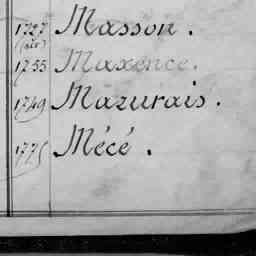 1727 Masson.
(bis)
1755 Maxence.
1749 Mazurais.
1775 Mécé.